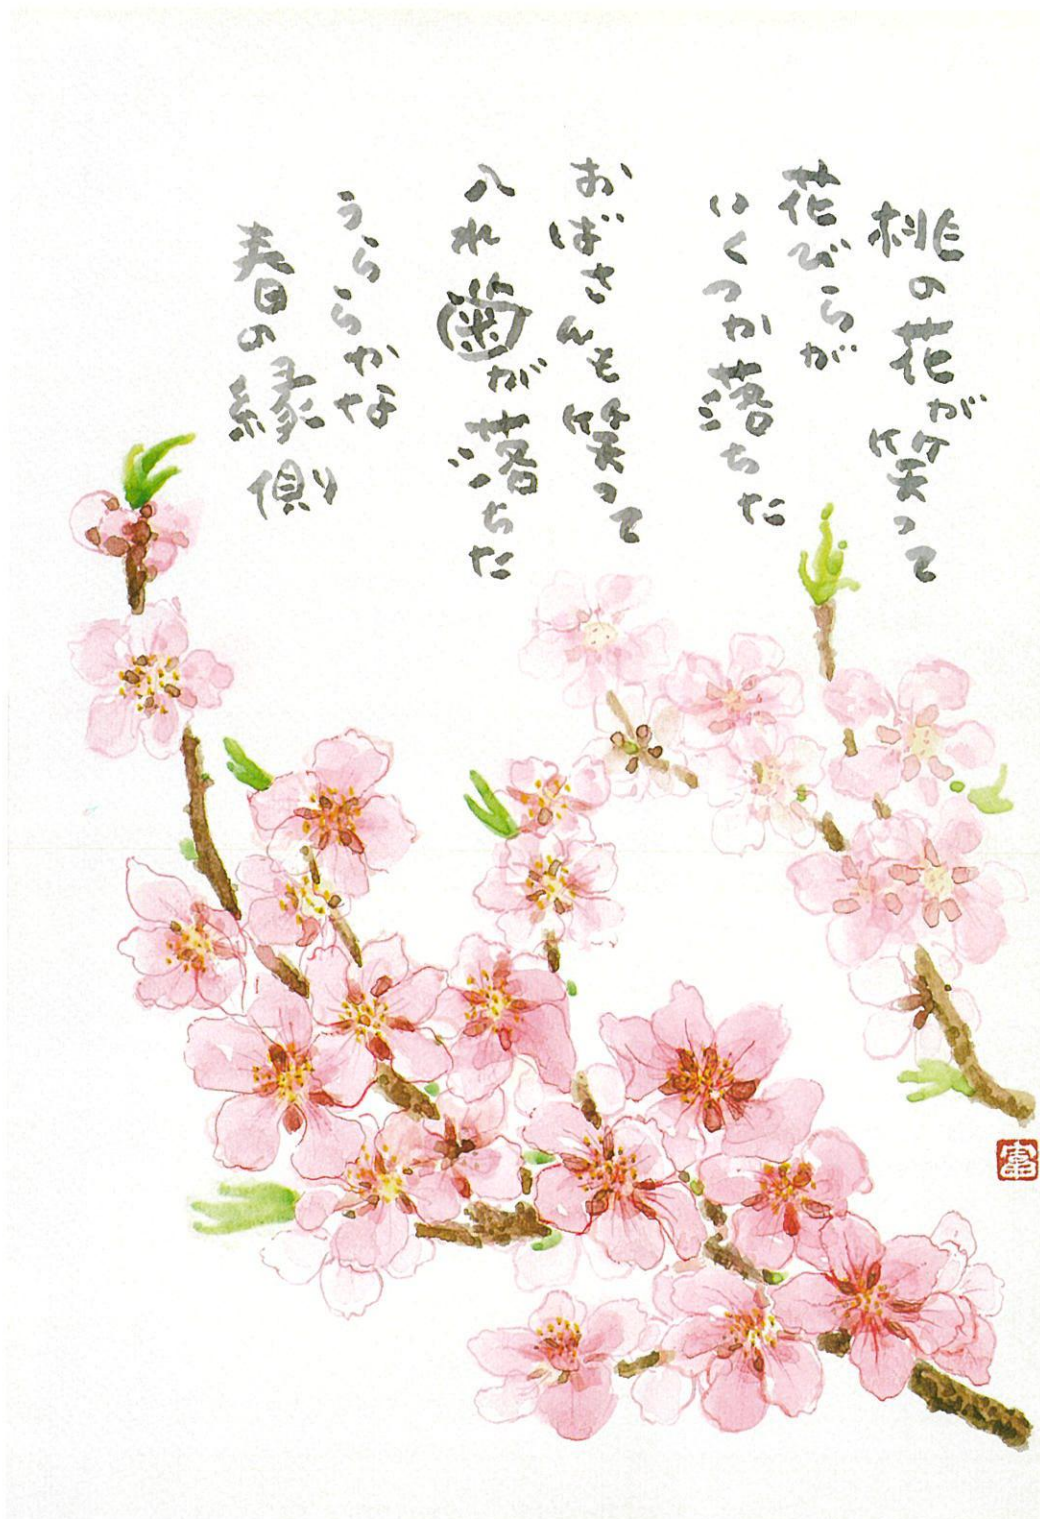 桃の花が笑って
花びらが
いくつか落ちた
おばさんも笑って
入れ歯が落ちた
うららかな
春の縁側
富